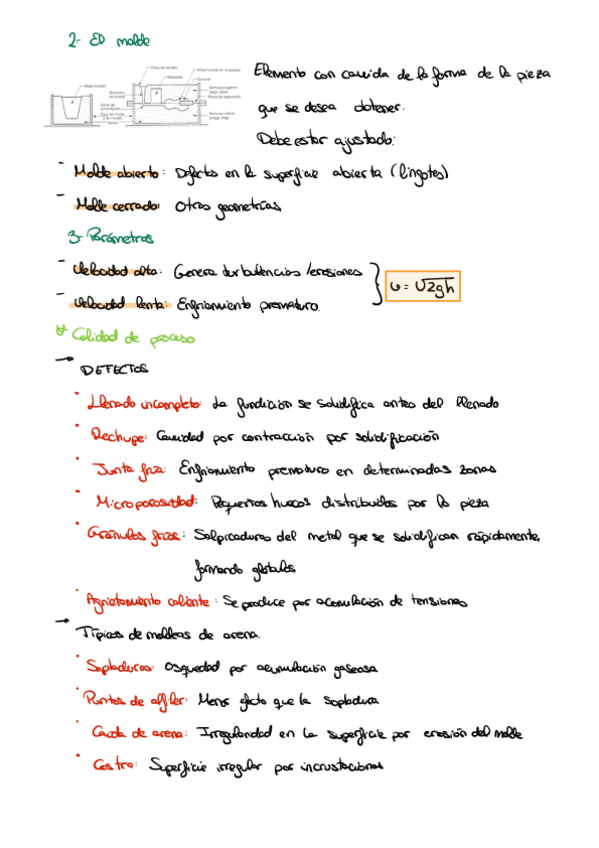 2- El molde
Elemento con cavidad de la forma de la pieza
que se desea obtener.
Debe estar ajustado:
- Molde abierto: Defectos en la superficie abierta (lingotes)
- Molde cerrado: Otras geometrías
3- Parámetros
- Velocidad alta: Genera turbulencias / erosiones
v = √2gh
- Velocidad lenta: Enfriamiento prematuro.
Calidad de proceso
→ DEFECTOS
· Llenado incompleto: La fundición se solidifica antes del llenado
· Rechupe: Cavidad por contracción por solidificación
· Junta fria: Enfriamiento prematuro en determinadas zonas
· Microporosidad: Pequeños huecos distribuidos por la pieza
· Gránulos frios: Salpicaduras del metal que se solidifican rápidamente,
formando glóbulos
· Agrietamiento caliente: Se produce por acumulación de tensiones
→ Típicos de moldeos de arena.
· Sopladuras: Oquedad por acumulación gaseosa
· Puntos de alfiler: Menor efecto que la sopladura
· Caida de arena: Irregularidad en la superficie por erosión del molde
· Costra: Superficie irregular por incrustaciones